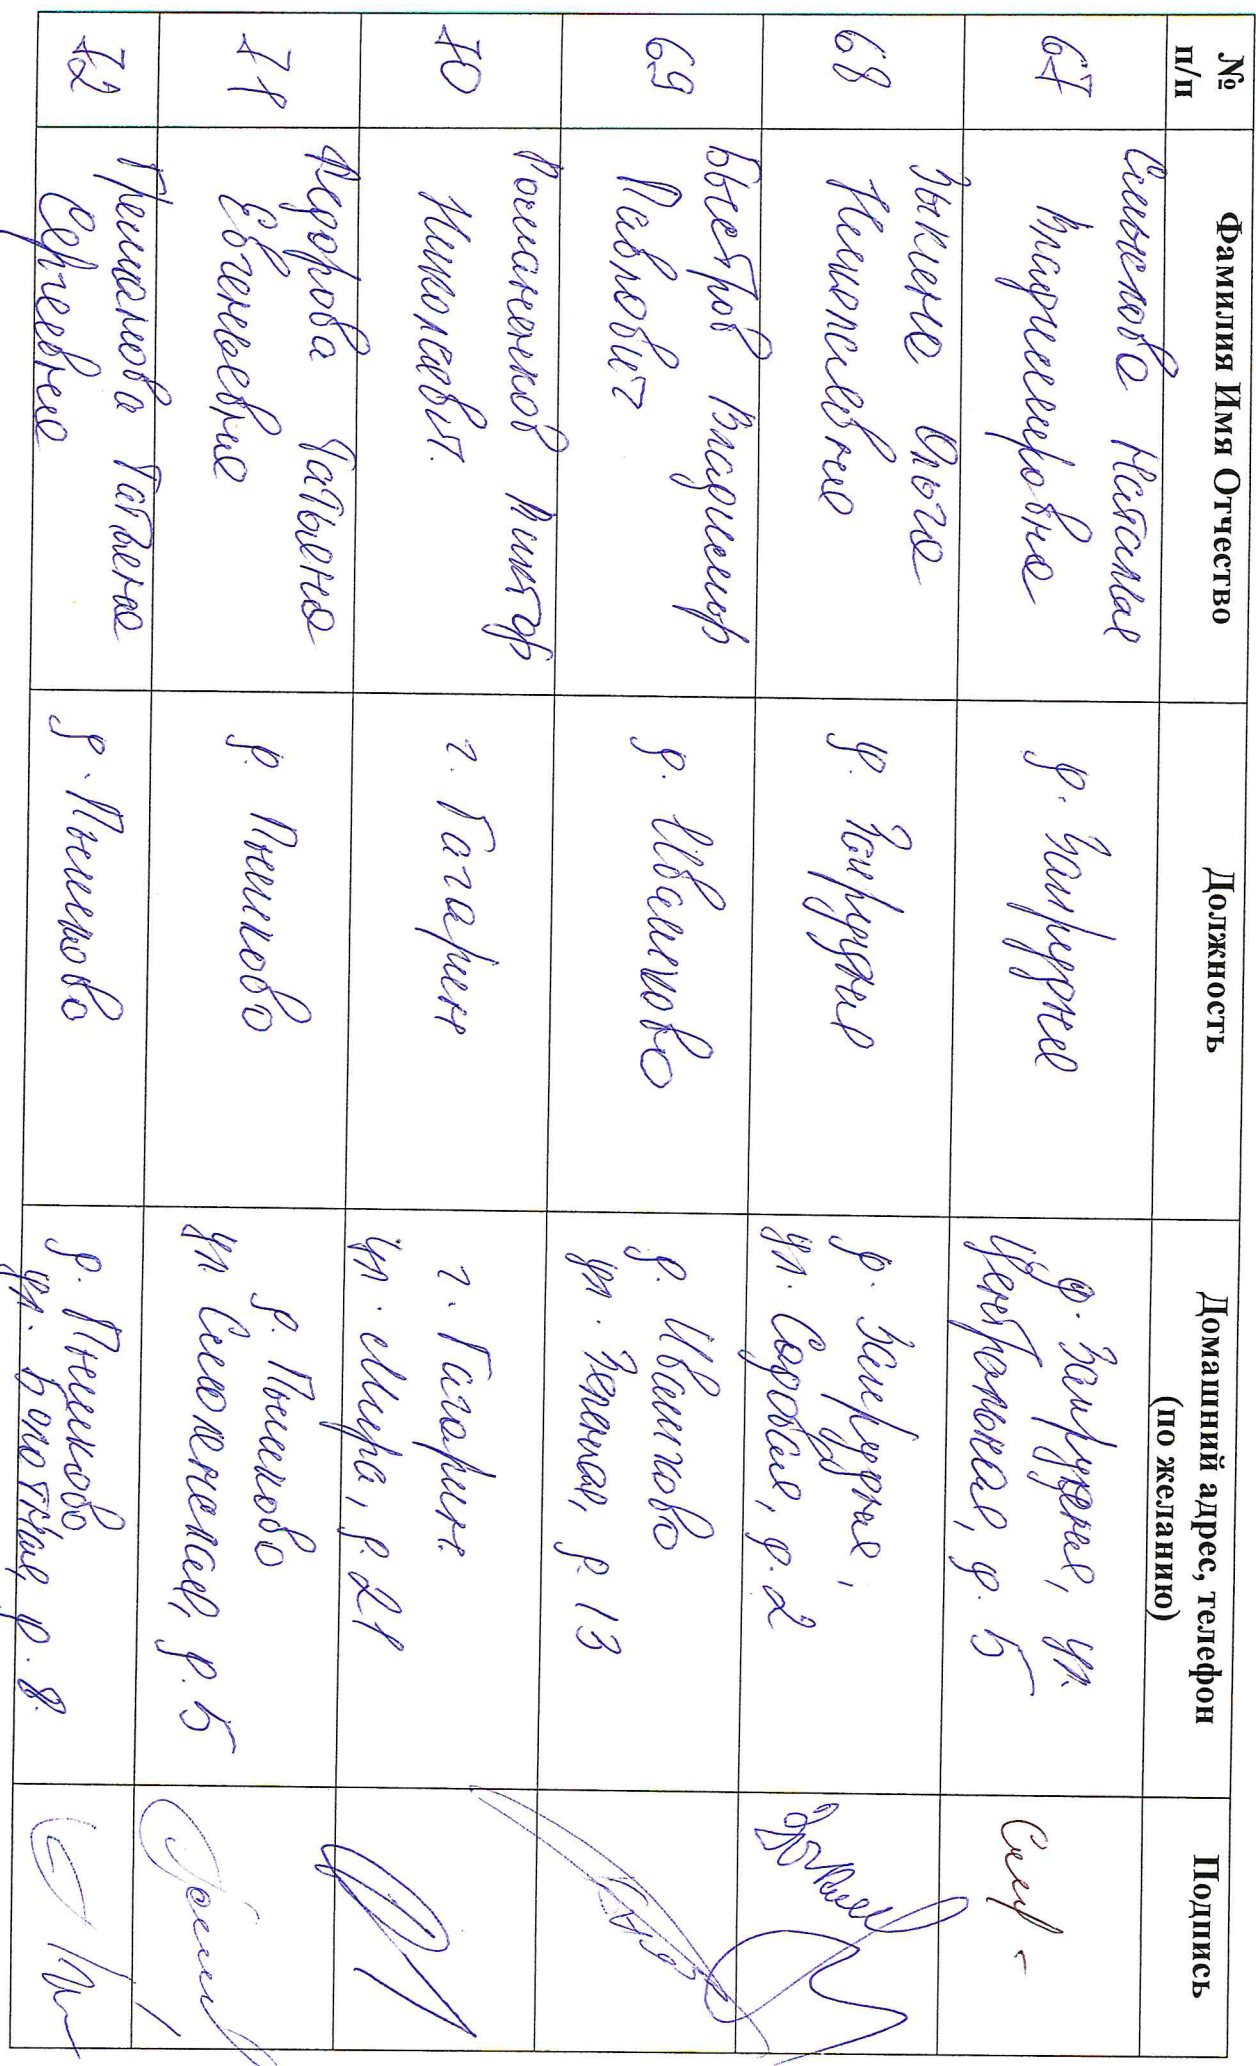 №
п/п
Фамилия Имя Отчество
Должность
Домашний адрес, телефон
(по желанию)
Подпись
67
Смыслова Наталия
Владимировна
д. Запрудня
д. Запрудня, ул.
Центральная, д. 5
68
Зыкина Ольга
Николаевна
д. Запрудня
д. Запрудня,
ул. Садовая, д. 2
69
Быстров Владимир
Павлович
д. Ивашково
д. Ивашково
ул. Зеленая, д. 13
70
Романенков Виктор
Николаевич.
г. Гагарин
г. Гагарин.
ул. Мира, д. 21
71
Федорова Татьяна
Евгеньевна
д. Пышково
д. Пышково
ул. Смоленская, д. 5
72
Татьяна
Сергеевна
д. Пышково
д. Пышково
ул. Болотная, д. 8.